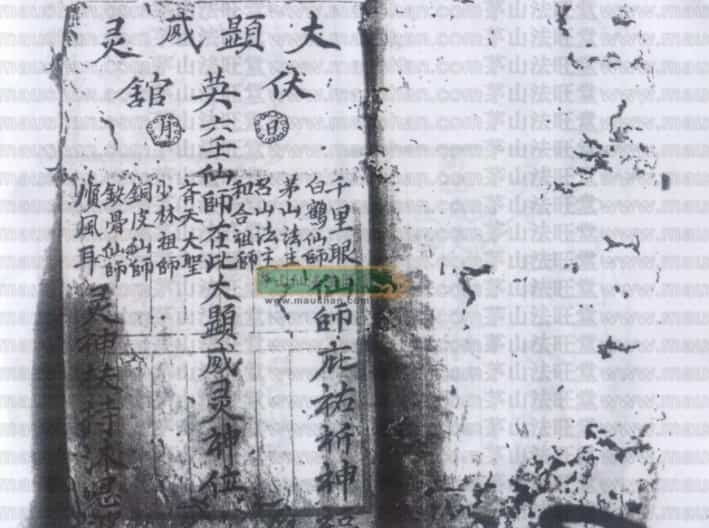 大顯威灵
伏英館
日
月
千里眼
白鶴仙師
茅山法主
吕山法主
和合祖師
仙師庇祐祈神
六壬仙師在此大顯威灵神位
斉天大聖
少林祖師
銅皮仙師
鉄骨仙師
順風耳
灵神扶持沐恩
www.maushan.com